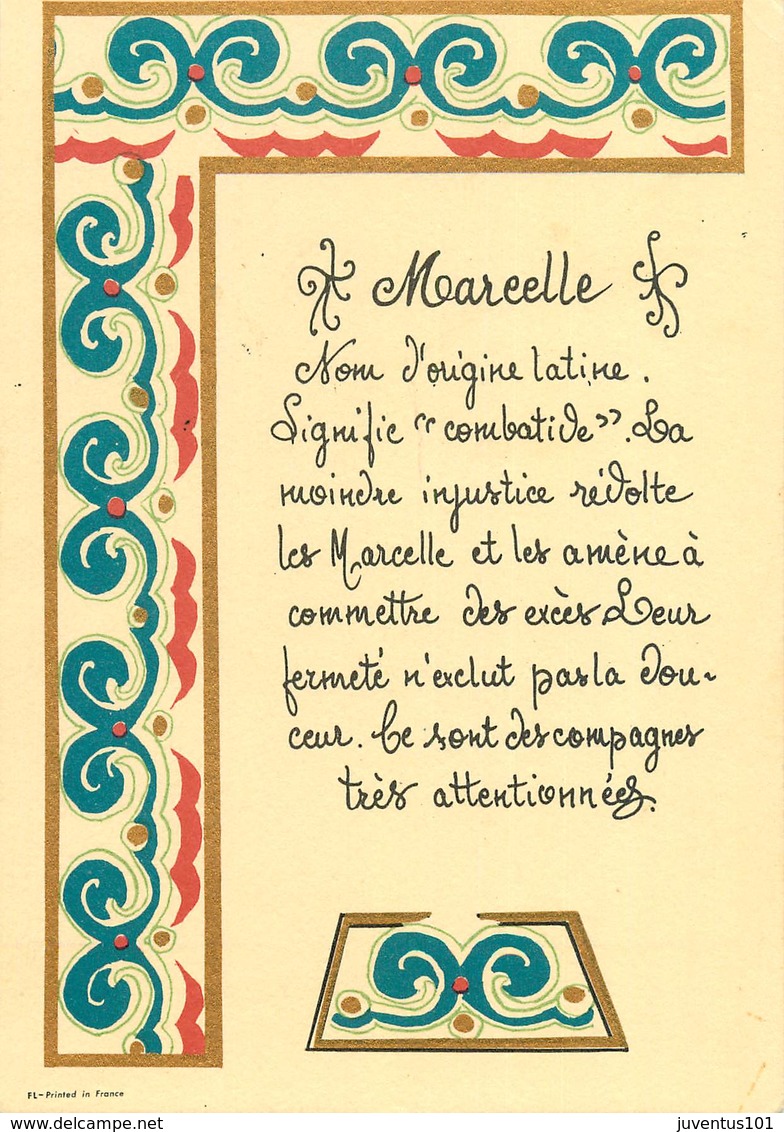 Marcelle
Nom d'origine latine.
Signifie "combative". La
moindre injustice révolte
les Marcelle et les amène à
commettre des excès Leur
fermeté n'exclut pas la dou-
ceur. Ce sont des compagnes
très attentionnées.
FL-Printed in France
delcampe.net
juventus101